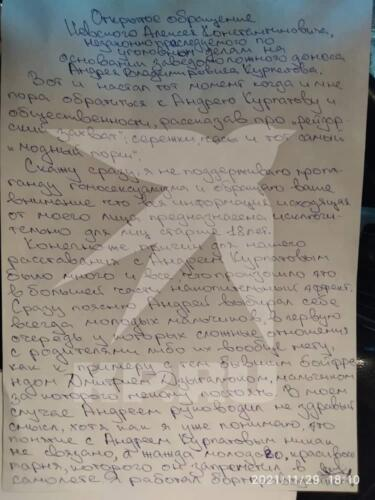 Открытое обращение
Невского Алексея Константиновича,
незаконно преследуемого по
уголовным делам на
основании заведомо ложного доноса
Андрея Владимировича Курпатова.
Вот и настал тот момент когда и мне
пора обратиться к Андрею Курпатову и
общественности, рассказав про „рейдер-
ский захват", сережки, часы и тот самый
„модный порш".
Скажу сразу, я не поддерживаю пропа-
ганду гомосексуализма и обращаю ваше
внимание что вся информация исходящая
от моего лица предназначена исключи-
тельно для лиц старше 18 лет.
Конечно же причин для нашего
расставания с Андреем Курпатовым
было много и все что произошло это
в большей части накопительный эффект.
Сразу поясню Андрей выбирал себе
всегда молодых мальчиков, в первую
очередь у которых сложные отношения
с родителями либо их вообще нету,
как к примеру с тем бывшим бойфре-
ндом Дмитрием мальчиком
за которого меня постоянно В моем
случае Андреем руководил не здравый
смысл, хотя как я уже понимаю, это
понятие с Андреем Курпатовым никак
не связано, а жажда молодого, красивого
парня, которого он запреметил в
самолете я работал
2021/11/29